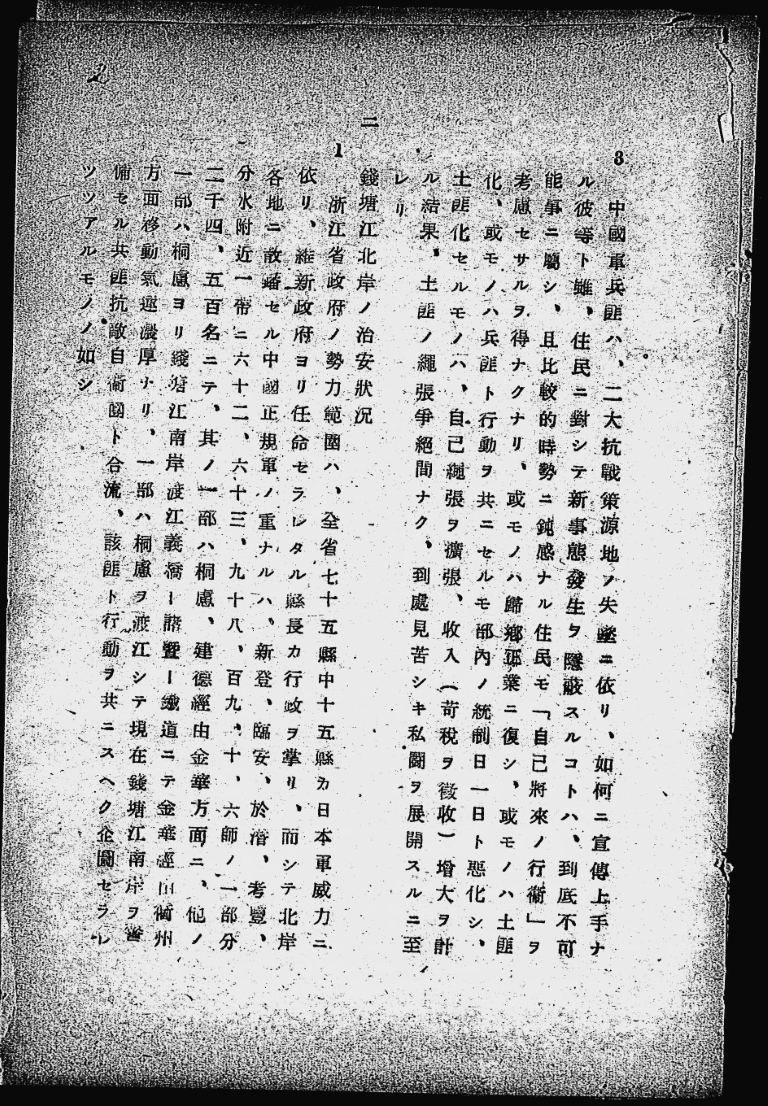 3
中國軍兵匪ハ、二大抗戰策源地ノ失墜ニ依リ、如何ニ宣傳上手ナ
ル彼等ト雖、住民ニ對シテ新事態發生ヲ隱蔽スルコトハ、到底不可
能事ニ屬シ、且比較的時勢ニ鈍感ナル住民モ「自己將來ノ行衞」ヲ
考慮セサルヲ得ナクナリ、或モノハ歸鄕正業ニ復シ、或モノハ土匪
化、或モノハ兵匪ト行動ヲ共ニセルモ部內ノ統制日一日ト惡化シ、
土匪化セルモノハ、自己繩張ヲ擴張、收入(苛稅ヲ徵收)增大ヲ計
ル結果、土匪ノ繩張爭絕間ナク、到處見苦シキ私鬪ヲ展開スルニ至
レリ
二
錢塘江北岸ノ治安狀況
1
浙江省政府ノ勢力範圍ハ、全省七十五縣中十五縣カ日本軍威力ニ
依リ、維新政府ヨリ任命セラレタル縣長カ行政ヲ掌リ、而シテ北岸
各地ニ散蟠セル中國正規軍ノ重ナルハ、新登、臨安、於潛、孝豐、
分水附近一帶ニ六十二、六十三、九十八、百九、十、六師ノ一部分
二千四、五百名ニテ、其ノ一部ハ桐慮、建德經由金華方面ニ、他ノ
一部ハ桐慮ヨリ錢塘江南岸渡江義橋ー諸曁ー鐵道ニテ金華經由衢州
方面移動氣運濃厚ナリ、一部ハ桐慮ヲ渡江シテ現在錢塘江南岸ヲ警
備セル共匪抗敵自衞團ト合流、該匪ト行動ヲ共ニスヘク企圖セラレ
ツツアルモノノ如シ